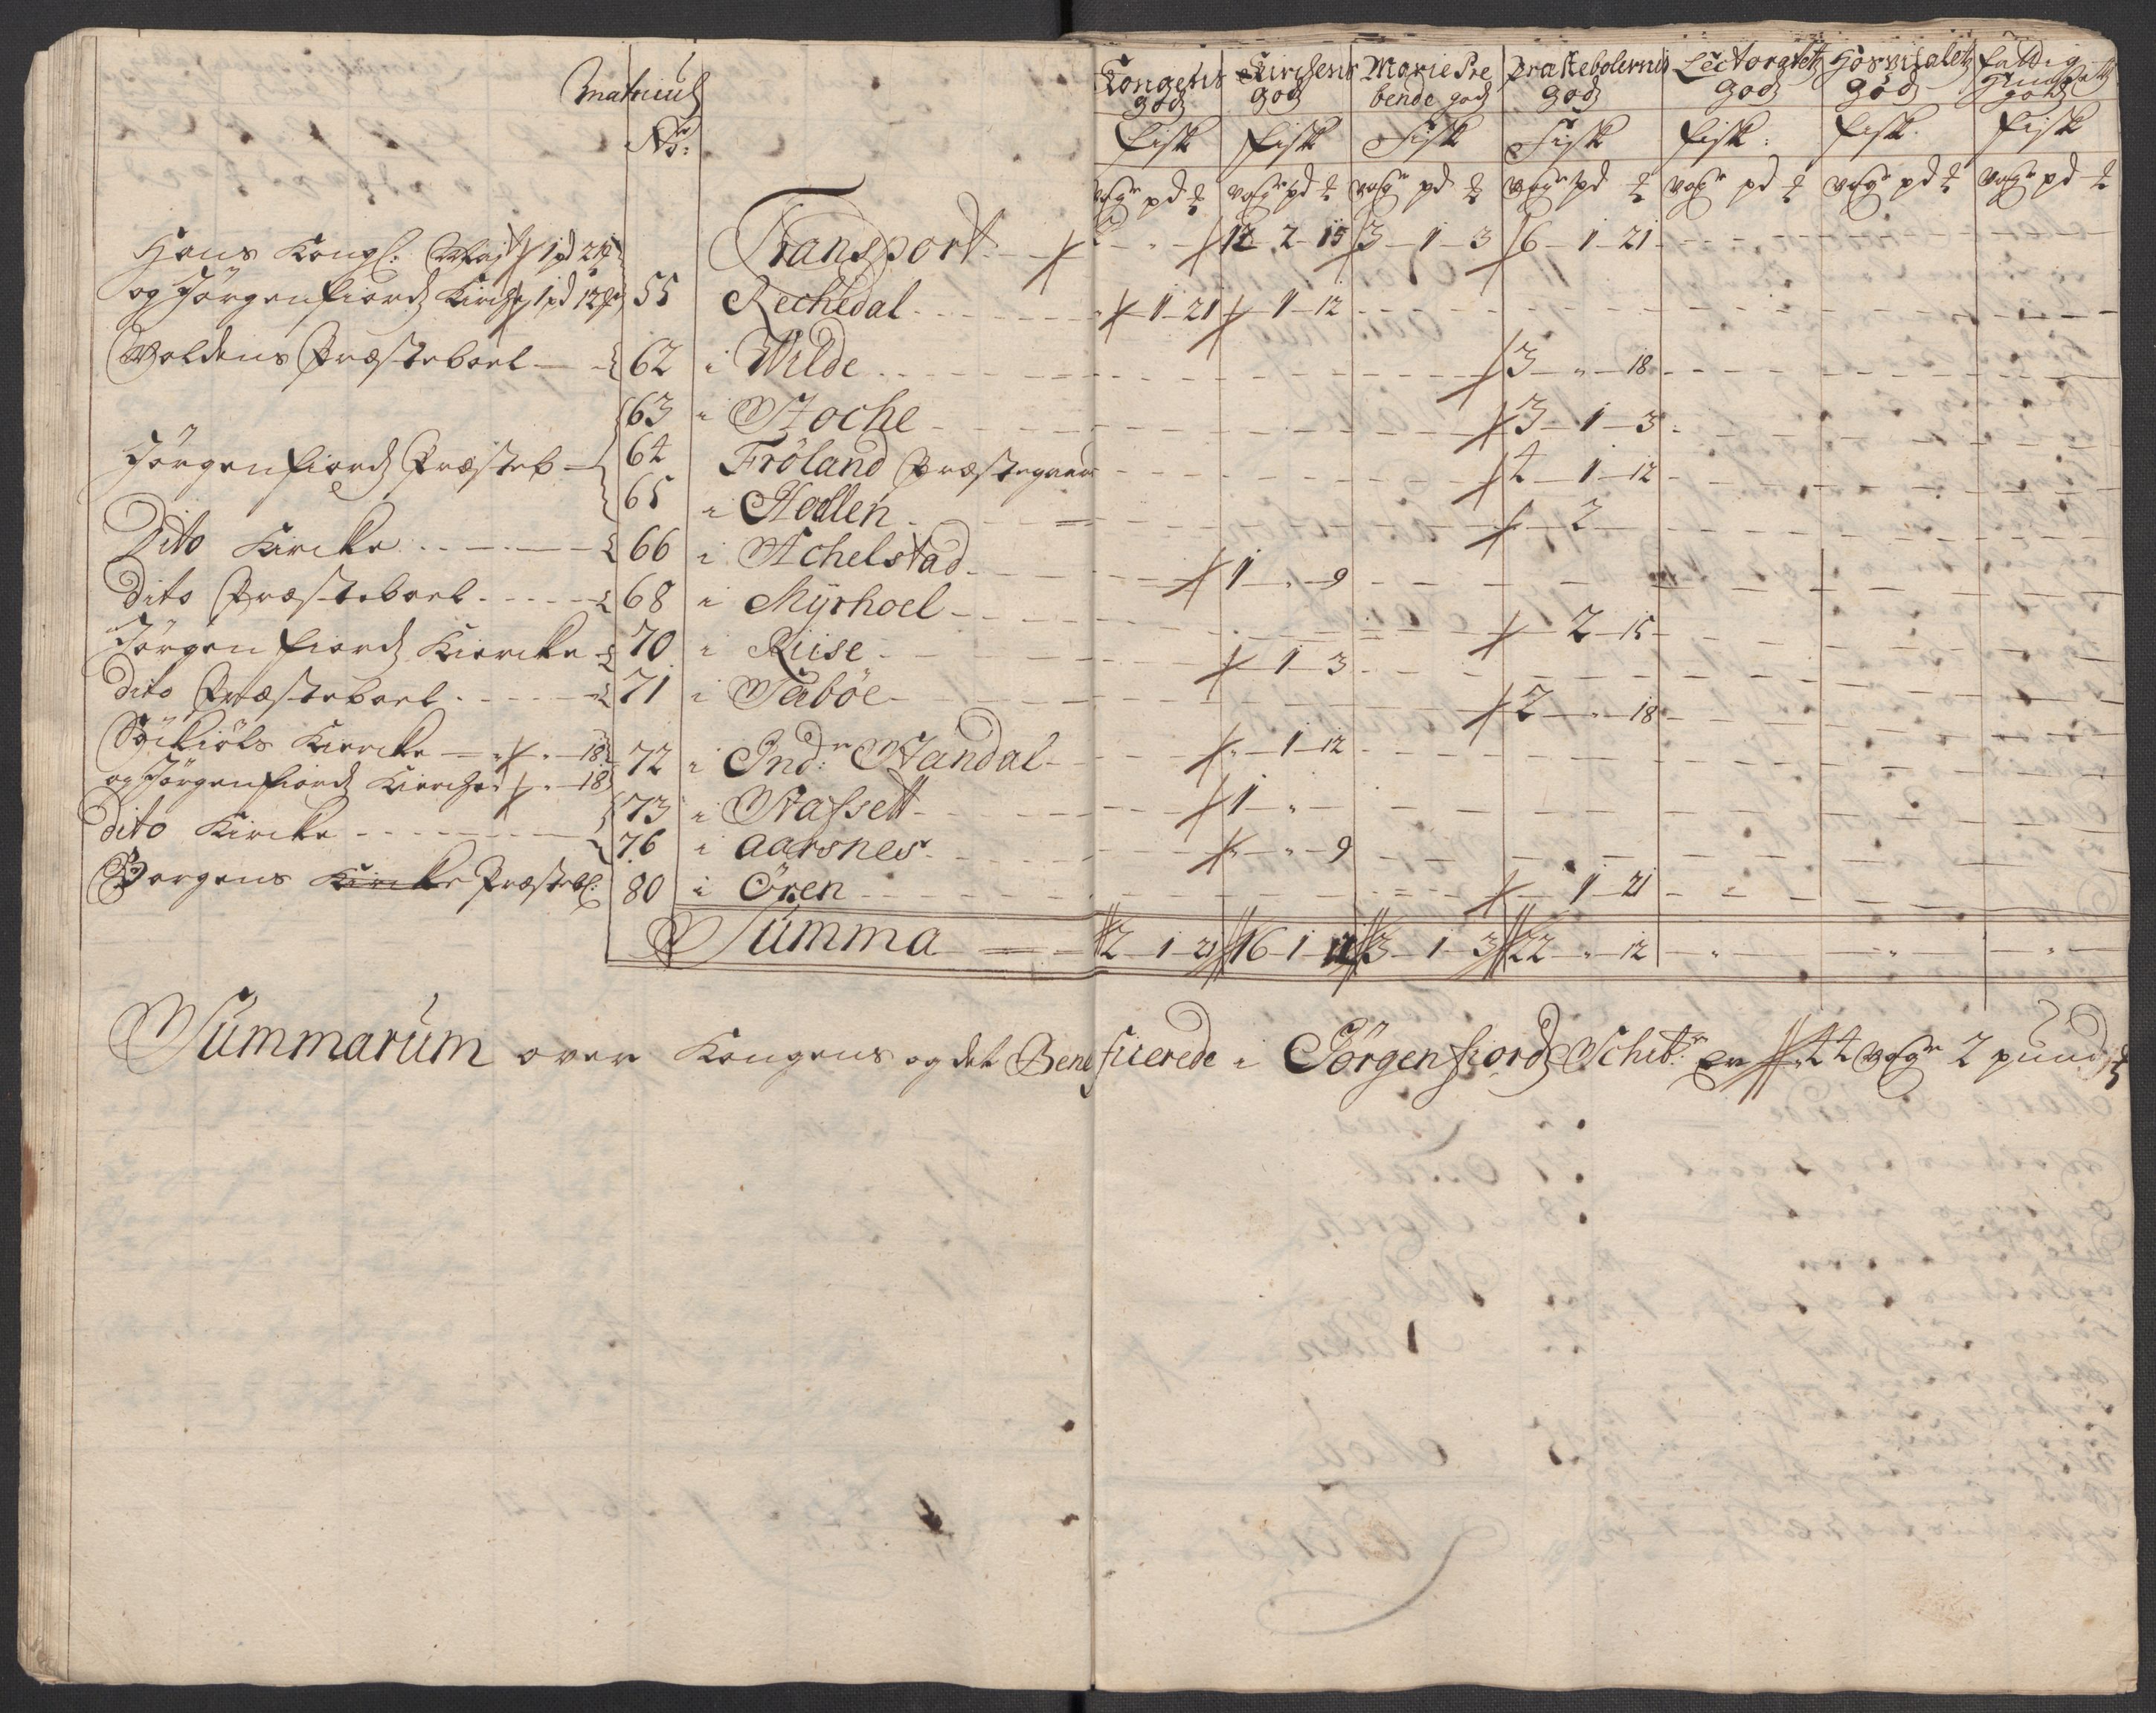 Matricul
No:
Kongens godz | Kirchens godz | Marie Prebende godz | Præstebolernis godz | Lectoratetz godz | Hospitaletz god | Fattig godtz
Fisk | Fisk | Fisk | Fisk | Fisk: | Fisk | Fisk
vogr pd | vogr pd | vogr pd | vogr pd | vogr pd | vogr pd | vogr pd
Transport 2 - " - | 12 - 2 - 15 | 3 - 1 - 3 | 6 - 1 - 21
Hans Kongl: Mayt 1 pd 21
og Jörgenfiordz Kirche 1 pd 12 | 55 | Rechedal | 1 - 21 | 1 - 12
Woldens Præsteboel | 62 | i Wilde | 3 - " - 18
63 | i Stoche | 3 - 1 - 3
Jörgenfiordz Præsteb | 64 | Fröland Præstegaard | 4 - 1 - 12
65 | i Hollen | 2
Dito Kircke | 66 | i Achelstad | 1 - " - 9
dito Præsteboel | 68 | i Myrhoel | 2 - 15
Jörgenfiordz Kiercke | 70 | i Riise | 1 - 3
dito Præsteboel | 71 | i Säböe | 2 - " - 18
Kiercke " - 18
og Jörgenfiordz Kierche " - 18 | 72 | i Indr Standal | " - 1 - 12
dito Kircke | 73 | i Stafsett | 1 - "
76 | i Aarsnes | " - " - 9
Borgens Præstebl: | 80 | i Ören | 1 - 21
Summa | 2 - 1 - 21 | 16 - 1 - 12 | 3 - 1 - 3 | 22 - " - 12 | " | " | "
Summarum over Kongens og det Beneficerede i Jörgenfiordz Schibr: er 44 vogr 2 pund